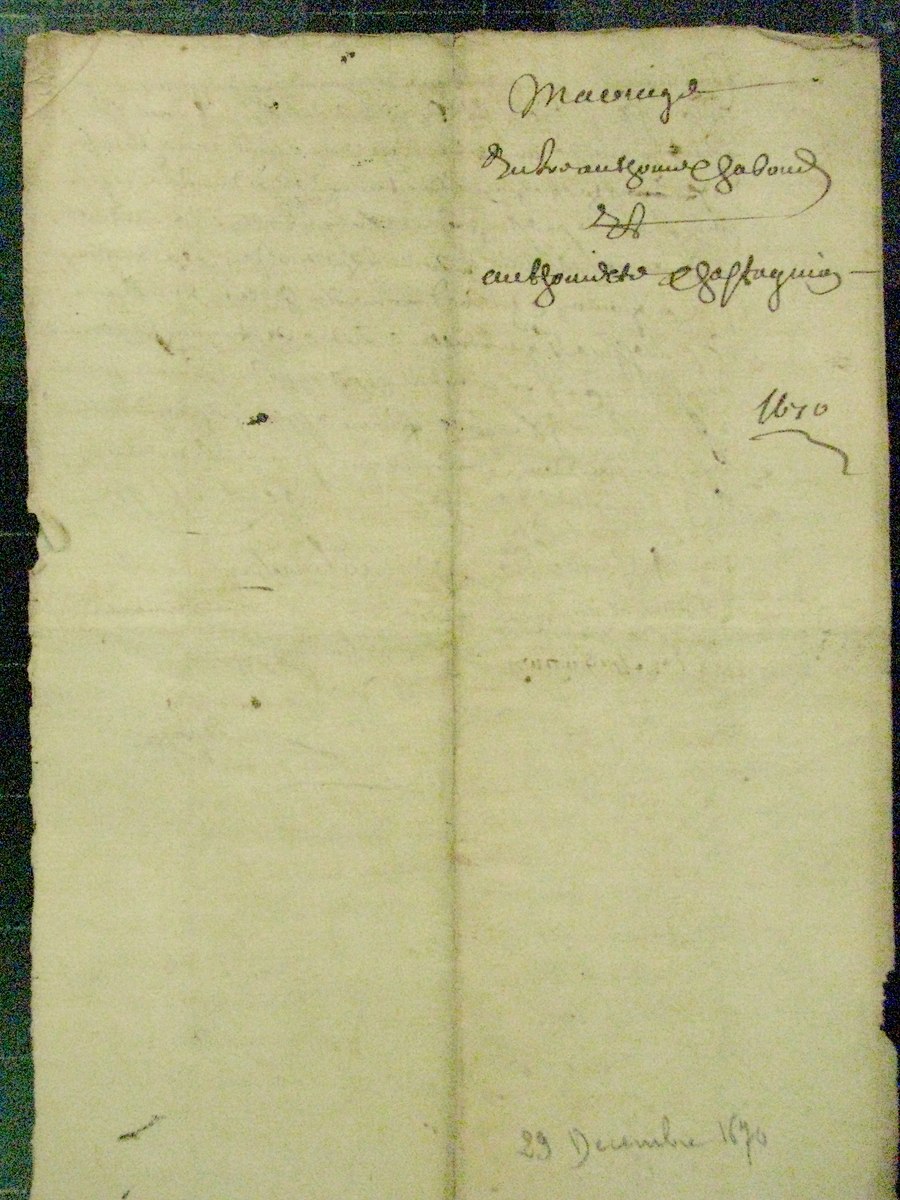 Marriage
Entre anthoine Chaboud
Et
anthoinette Chastagnier
1670
29 Decembre 1670